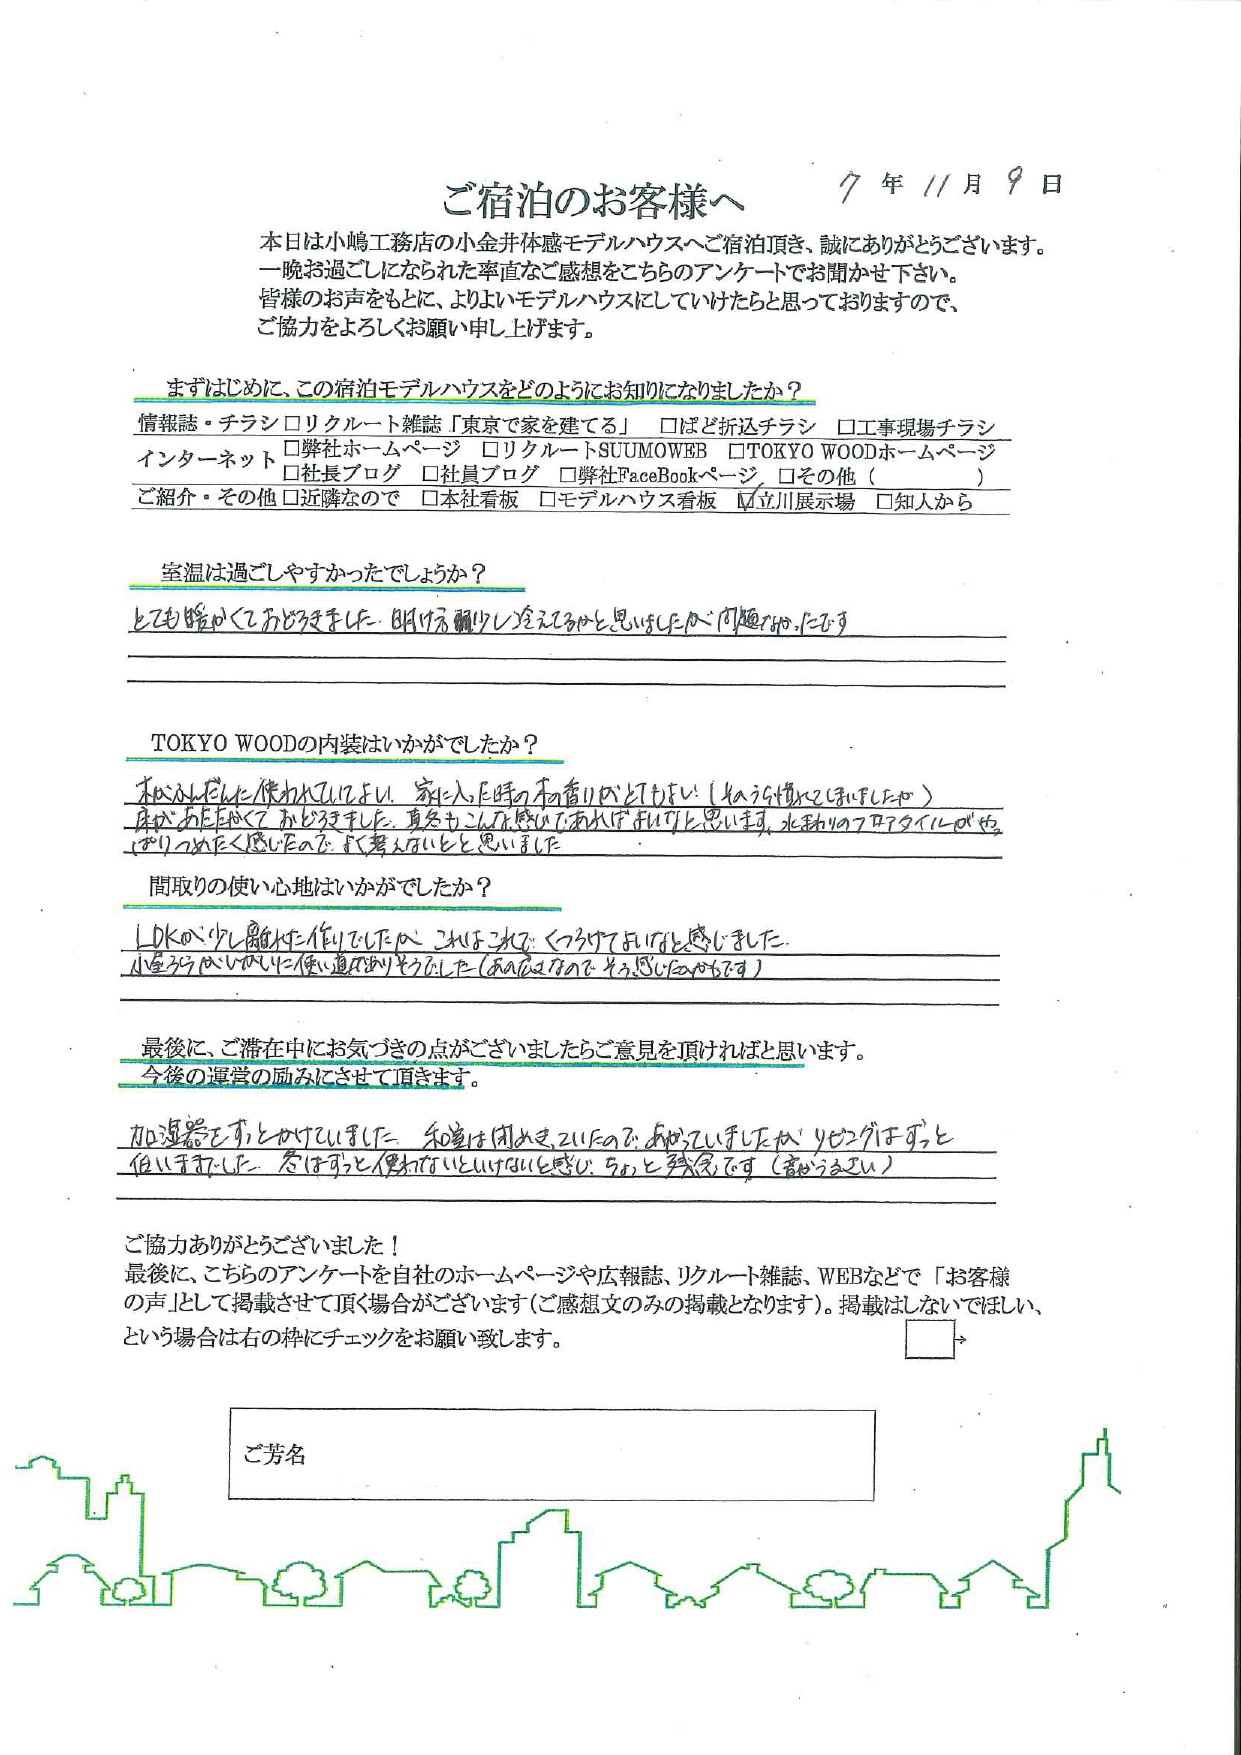 7 年 11 月 9 日
ご宿泊のお客様へ
本日は小嶋工務店の小金井体感モデルハウスへご宿泊頂き、誠にありがとうございます。
一晩お過ごしになられた率直なご感想をこちらのアンケートでお聞かせ下さい。
皆様のお声をもとに、よりよいモデルハウスにしていけたらと思っておりますので、
ご協力をよろしくお願い申し上げます。
まずはじめに、この宿泊モデルハウスをどのようにお知りになりましたか？
情報誌・チラシ □リクルート雑誌「東京で家を建てる」 □ぱど折込チラシ □工事現場チラシ
インターネット □弊社ホームページ □リクルートSUUMOWEB □TOKYO WOODホームページ
□社長ブログ □社員ブログ □弊社FaceBookページ □その他（ ）
ご紹介・その他 □近隣なので □本社看板 □モデルハウス看板 ☑立川展示場 □知人から
室温は過ごしやすかったでしょうか？
とても暖かくておどろきました。明け方少し冷えてるかと思いましたが問題なかったです
TOKYO WOODの内装はいかがでしたか？
木がふんだんに使われていてよい。家に入った時の木の香りがとてもよい！（そのうち慣れてしまいましたが）
床があたたかくておどろきました。真冬もこんな感じであればよいなと思います。水まわりのフロアタイルがやっ
ぱりつめたく感じたので、よく考えないとと思いました
間取りの使い心地はいかがでしたか？
LDKが少し離れた作りでしたが これはこれで、くつろげてよいなと感じました。
小屋うらがいがいに使い道がありそうでした（あの広さなのでそう感じたのかもです）
最後に、ご滞在中にお気づきの点がございましたらご意見を頂ければと思います。
今後の運営の励みにさせて頂きます。
加湿器をずっとかけていました。和室は閉めきっていたので、あがっていましたが リビングはずっと
低いままでした。冬はずっと使わないといけないと感じ、ちょっと残念です（音がうるさい）
ご協力ありがとうございました！
最後に、こちらのアンケートを自社のホームページや広報誌、リクルート雑誌、WEBなどで「お客様
の声」として掲載させて頂く場合がございます（ご感想文のみの掲載となります）。掲載はしないでほしい、
という場合は右の枠にチェックをお願い致します。 □→
ご芳名